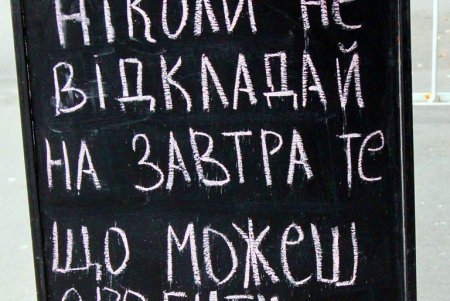 НІКОЛИ НЕ
ВІДКЛАДАЙ
НА ЗАВТРА ТЕ
ЩО МОЖЕШ